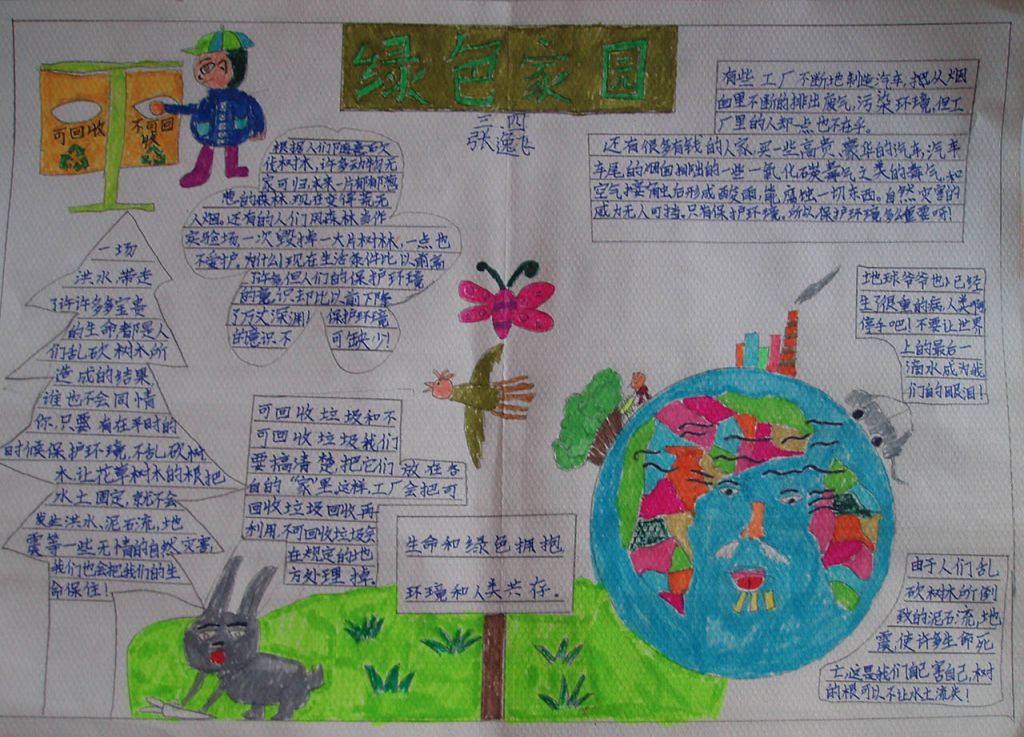 绿色家园
三 四
张逸飞
可回收
不可回收
有些工厂不断地制造汽车,把从烟
囱里不断的排出废气,污染环境,但工
厂里的人却一点也不在乎。
还有很多有钱的人家,买一些高贵、豪华的汽车,汽车
车尾的烟囱排出的一些一氧化碳毒气之类的毒气,和
空气接触后形成酸雨,能腐蚀一切东西。自然灾害的
威力无人可挡,只有保护环境,所以保护环境多么重要呀!
根据人们随意砍
伐树木,许多动物无
家可归,本来一片郁郁葱
葱的森林现在变得荒无
人烟。还有的人们用森林当作
实验场一次毁掉一大片树林,一点也
不爱护,为什么现在生活条件比以前高
了许多但人们的保护环境
的意识却比以前下降
了万丈深渊! 保护环境
的意识不 可缺少!
一场
洪水带走
了许许多多宝贵
的生命都是人
们乱砍树木所
造成的结果,
谁也不会同情
你,只要有在平时的
时候保护环境,不乱砍树
木,让花草树木的根把
水土固定,就不会
发生洪水、泥石流、地
震等一些无情的自然灾害,
我们也会把我们的生
命保住!
可回收垃圾和不
可回收垃圾我们
要搞清楚,把它们放在各
自的“家”里,这样,工厂会把可
回收垃圾回收再
利用,不可回收垃圾会
在规定的地
方处理掉。
生命和绿色拥抱,
环境和人类共存。
地球爷爷也已经
生了很重的病,人类啊,
停手吧!不要让世界
上的最后一
滴水成为我
们的眼泪!
由于人们乱
砍树木所倒
致的泥石流,地
震,使许多生命死
亡,这是我们自己害自己,树
的根可以不让水土流失!